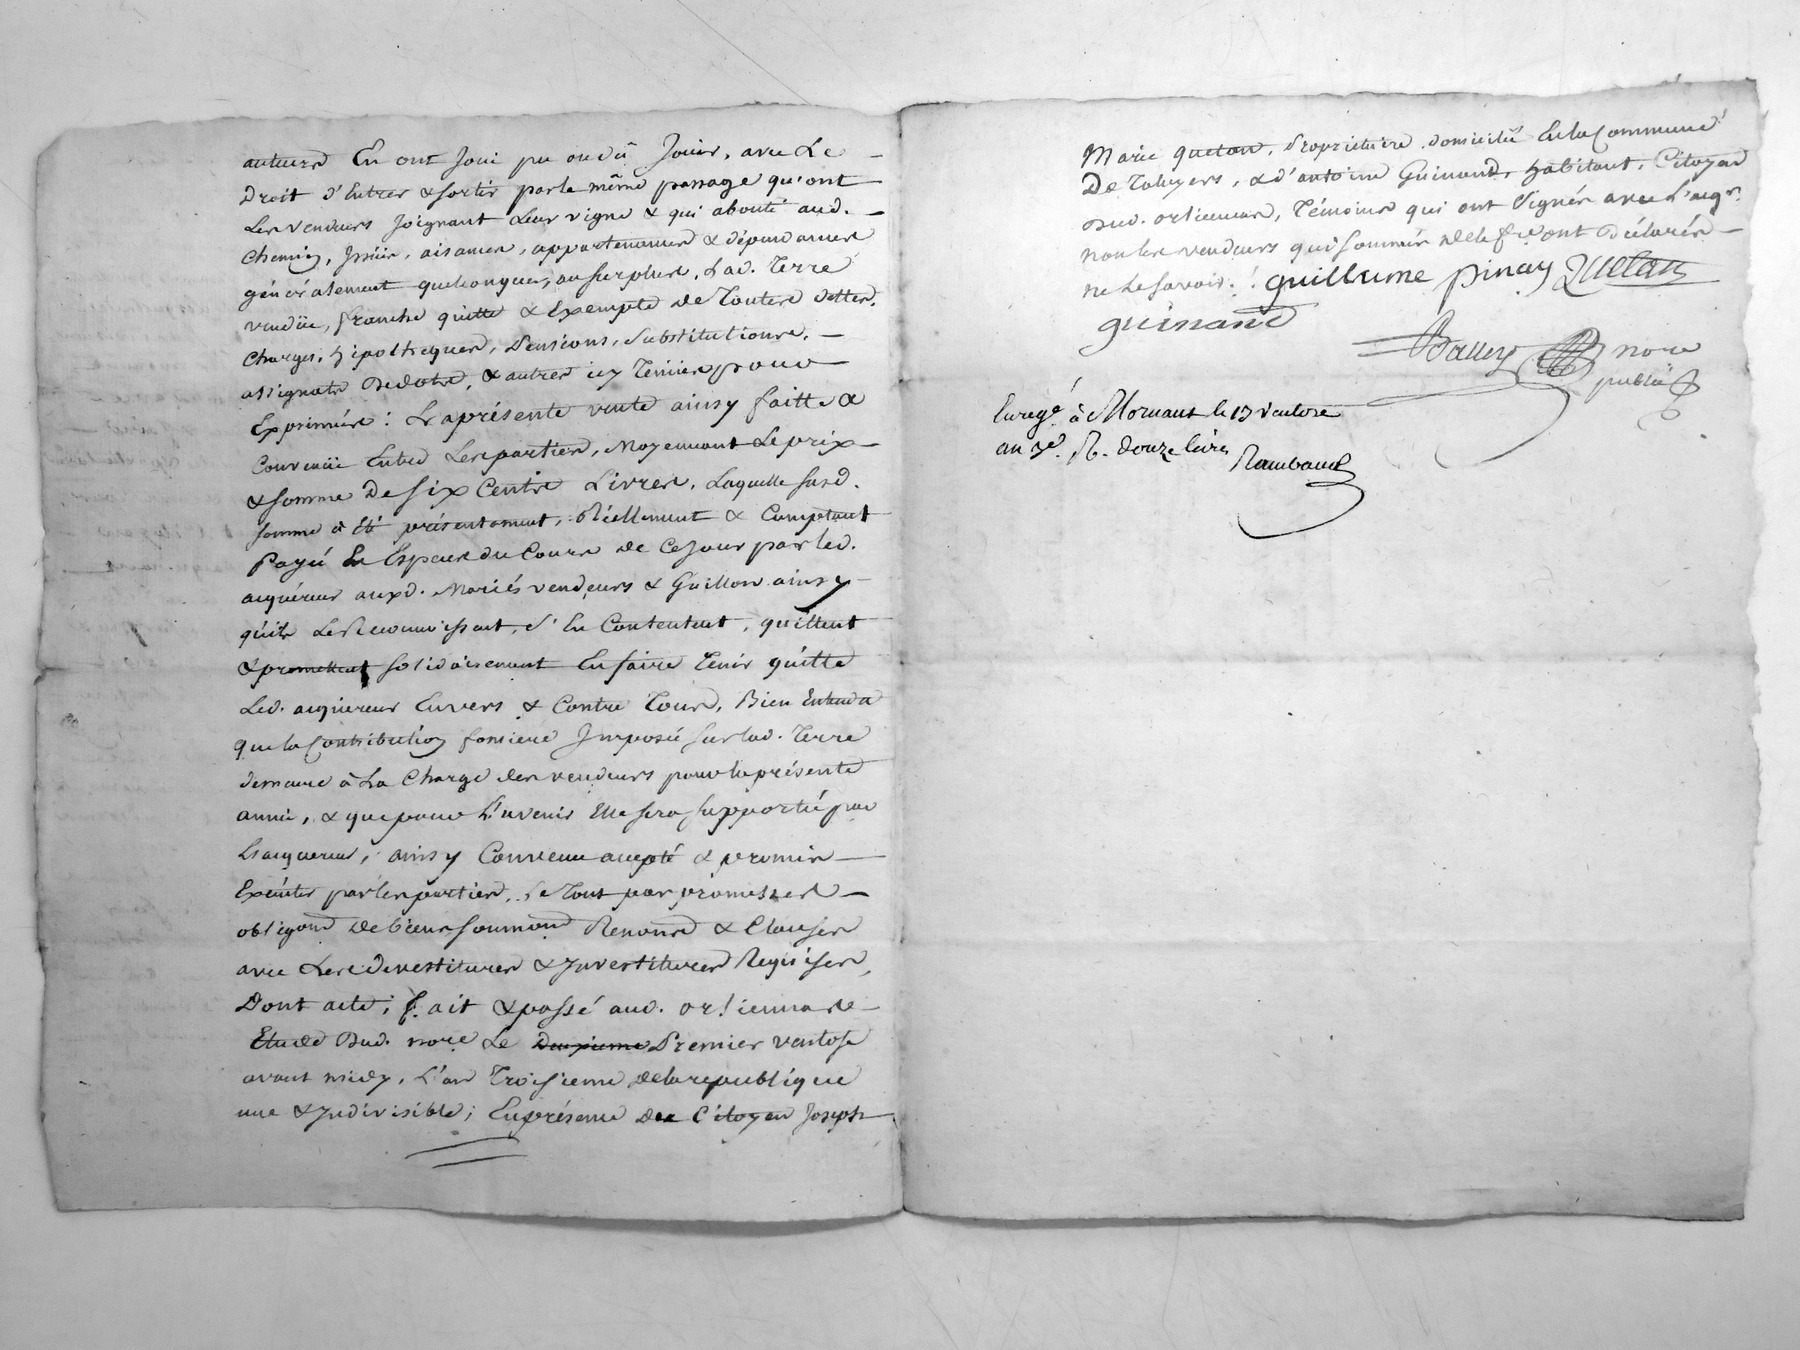 auteurs En ont Joui pu ou dû Jouir, avec Le –
Droit d'Entrer & sortir par le même passage qu'ont
Les vendeurs Joignant Leur vigne & qui aboute aud. –
Chemin, Issües, aisances, appartenances & dépendances
généralement quelconques, au surplus, Lad. Terre
vendüe, franche quitte & Exempte de Toutes dettes,
Charges, hipothéques, Pensions, Substitutions, –
assignats Dedots, & autres icy Tenües pour
Exprimées : La présente vente ainsy faitte &
Convenüe Entre Les parties, Moyennant Le prix –
& somme De Six Cents Livres, Laquelle susd.
somme à été présentement, Réellement & Comptant
Payé En Espece du Cours de Ce Jour par led.
acquéreur auxd. Mariés vendeurs & Guillon ainsy –
qu'ils Le Reconnoissent, S'En Contentent, quittent
& promettent solidairement En faire Tenir quitte
Led. acquéreur Envers & Contre Tous, Bien Entendu
que la Contribution fonciere Imposée sur lad. Terre
demeure à La Charge des vendeurs pour la présente
année, & que pour L'avenir Elle sera supportée par
L'acquereur, ainsy Convenu accepté & promis –
Exécuter par les parties, Le Tout par promesses –
obligons De biens soumons Renons & Clauses
avec Les devestitures & Investitures Requises,
Dont acte, fait & passé aud. orliennas –
Etude Dud. nore Le Deuxieme Premier ventose
avant midy, L'an Troisieme de la republique
une & Indivisible; En présence de Citoyen Joseph
Marie quelan, Propriétaire domicilié En la Commune
De Taluyers, & d'antoine Guinand, habitant, Citoyen
Dud. orliennas, Témoins qui ont Signés avec L'aqr.
non les vendeurs qui Sommés de le fre ont Déclarés –
ne Le savoir. guillaume pinay Quelan
guinand
Balley nore
public
Enregé. à Mornant le 13 ventose
an 3e. R. douze livres
Rambaud